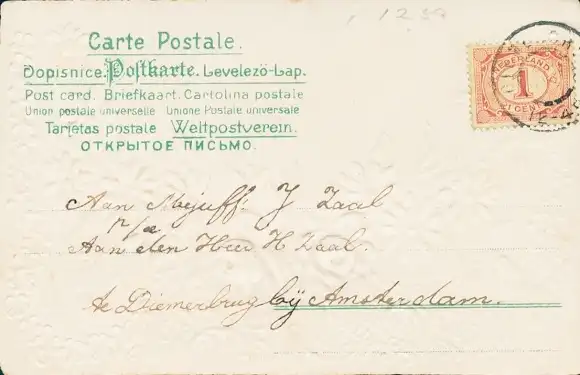 1239
Carte Postale.
Dopisnice. Postkarte. Levelezö-Lap.
Post card. Briefkaart. Cartolina postale
Union postale universelle Unione Postale universale
Tarjetas postale Weltpostverein.
ОТКРЫТОЕ ПИСЬМО.
NEDERLAND
1
CENT
Aan Mejuffr. J Zaal
p/a
Aan den Heer H Zaal.
te Diemerbrug bÿ Amsterdam.